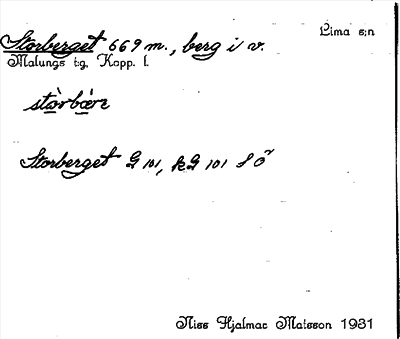 Lima s:n
Storberget 669 m., berg i v.
Malungs tg. Kopp. l.
stòrbæ̀rε
Storberget G 101, kG 101 S Ö
Nils Hjalmar Matsson 1931